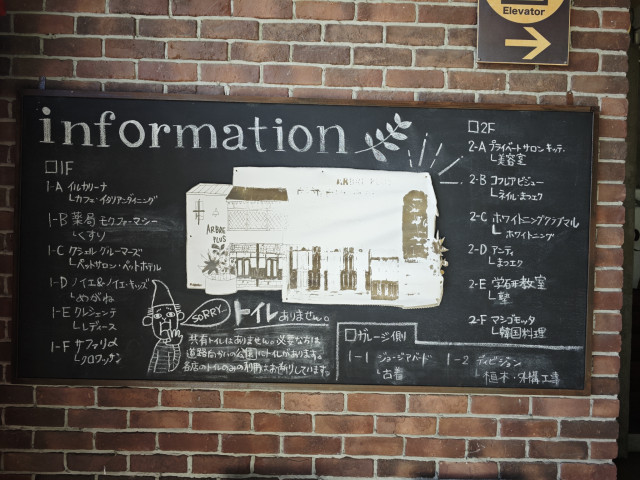 Elevator
information
1F
1-A イルカリーナ
カフェ・イタリアンダイニング
1-B 薬局 モクファーマシー
くすり
1-C クシェル グルーマーズ
ペットサロン・ペットホテル
1-D ノイエ&ノイエ・キッズ
めがね
1-E クレシェンテ
レディース
1-F サファリ
クロワッサン
ARBRE
PLUS
SORRY
トイレありません。
共有トイレはありません。必要な方は
道路向かいの公園にトイレがあります。
各店のトイレのみの利用はお断りしています。
2F
2-A プライベートサロン キッティ
美容室
2-B コフレアビジュー
ネイル・まつエク
2-C ホワイトニングクラブマル
ホワイトニング
2-D アンティ
まつエク
2-E 学研教室
塾
2-F マシゴモッタ
韓国料理
ガレージ側
1-1 ジョージアバード
古着
1-2 ディビジョン
植木・外構工事